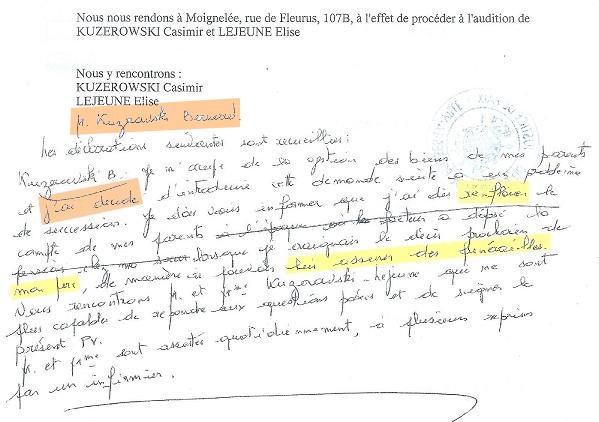 Nous nous rendons à Moignelée, rue de Fleurus, 107B, à l'effet de procéder à l'audition de
KUZEROWSKI Casimir et LEJEUNE Elise
Nous y rencontrons :
KUZEROWSKI Casimir
LEJEUNE Elise
M. Kuzerowski Bernard.
Les déclarations suivantes sont recueillies :
Kuzerowski B. Je m'occupe de la gestion des biens de mes parents
et j'ai décidé d'introduire cette demande suite à un problème
de succession. Je dois vous informer que j'ai dû renflouer le
compte de mes parents à le facteur a déposé la
lorsque je craignais le décès prochain de
mon père, de manière à pouvoir lui assurer des funérailles.
Nous rencontrons M. et Mme Kuzerowski-Lejeune qui ne sont
plus capables de répondre aux questions posées et de signer le
présent PV.
M. et Mme sont assistés quotidiennement, à plusieurs reprises
par un infirmier.